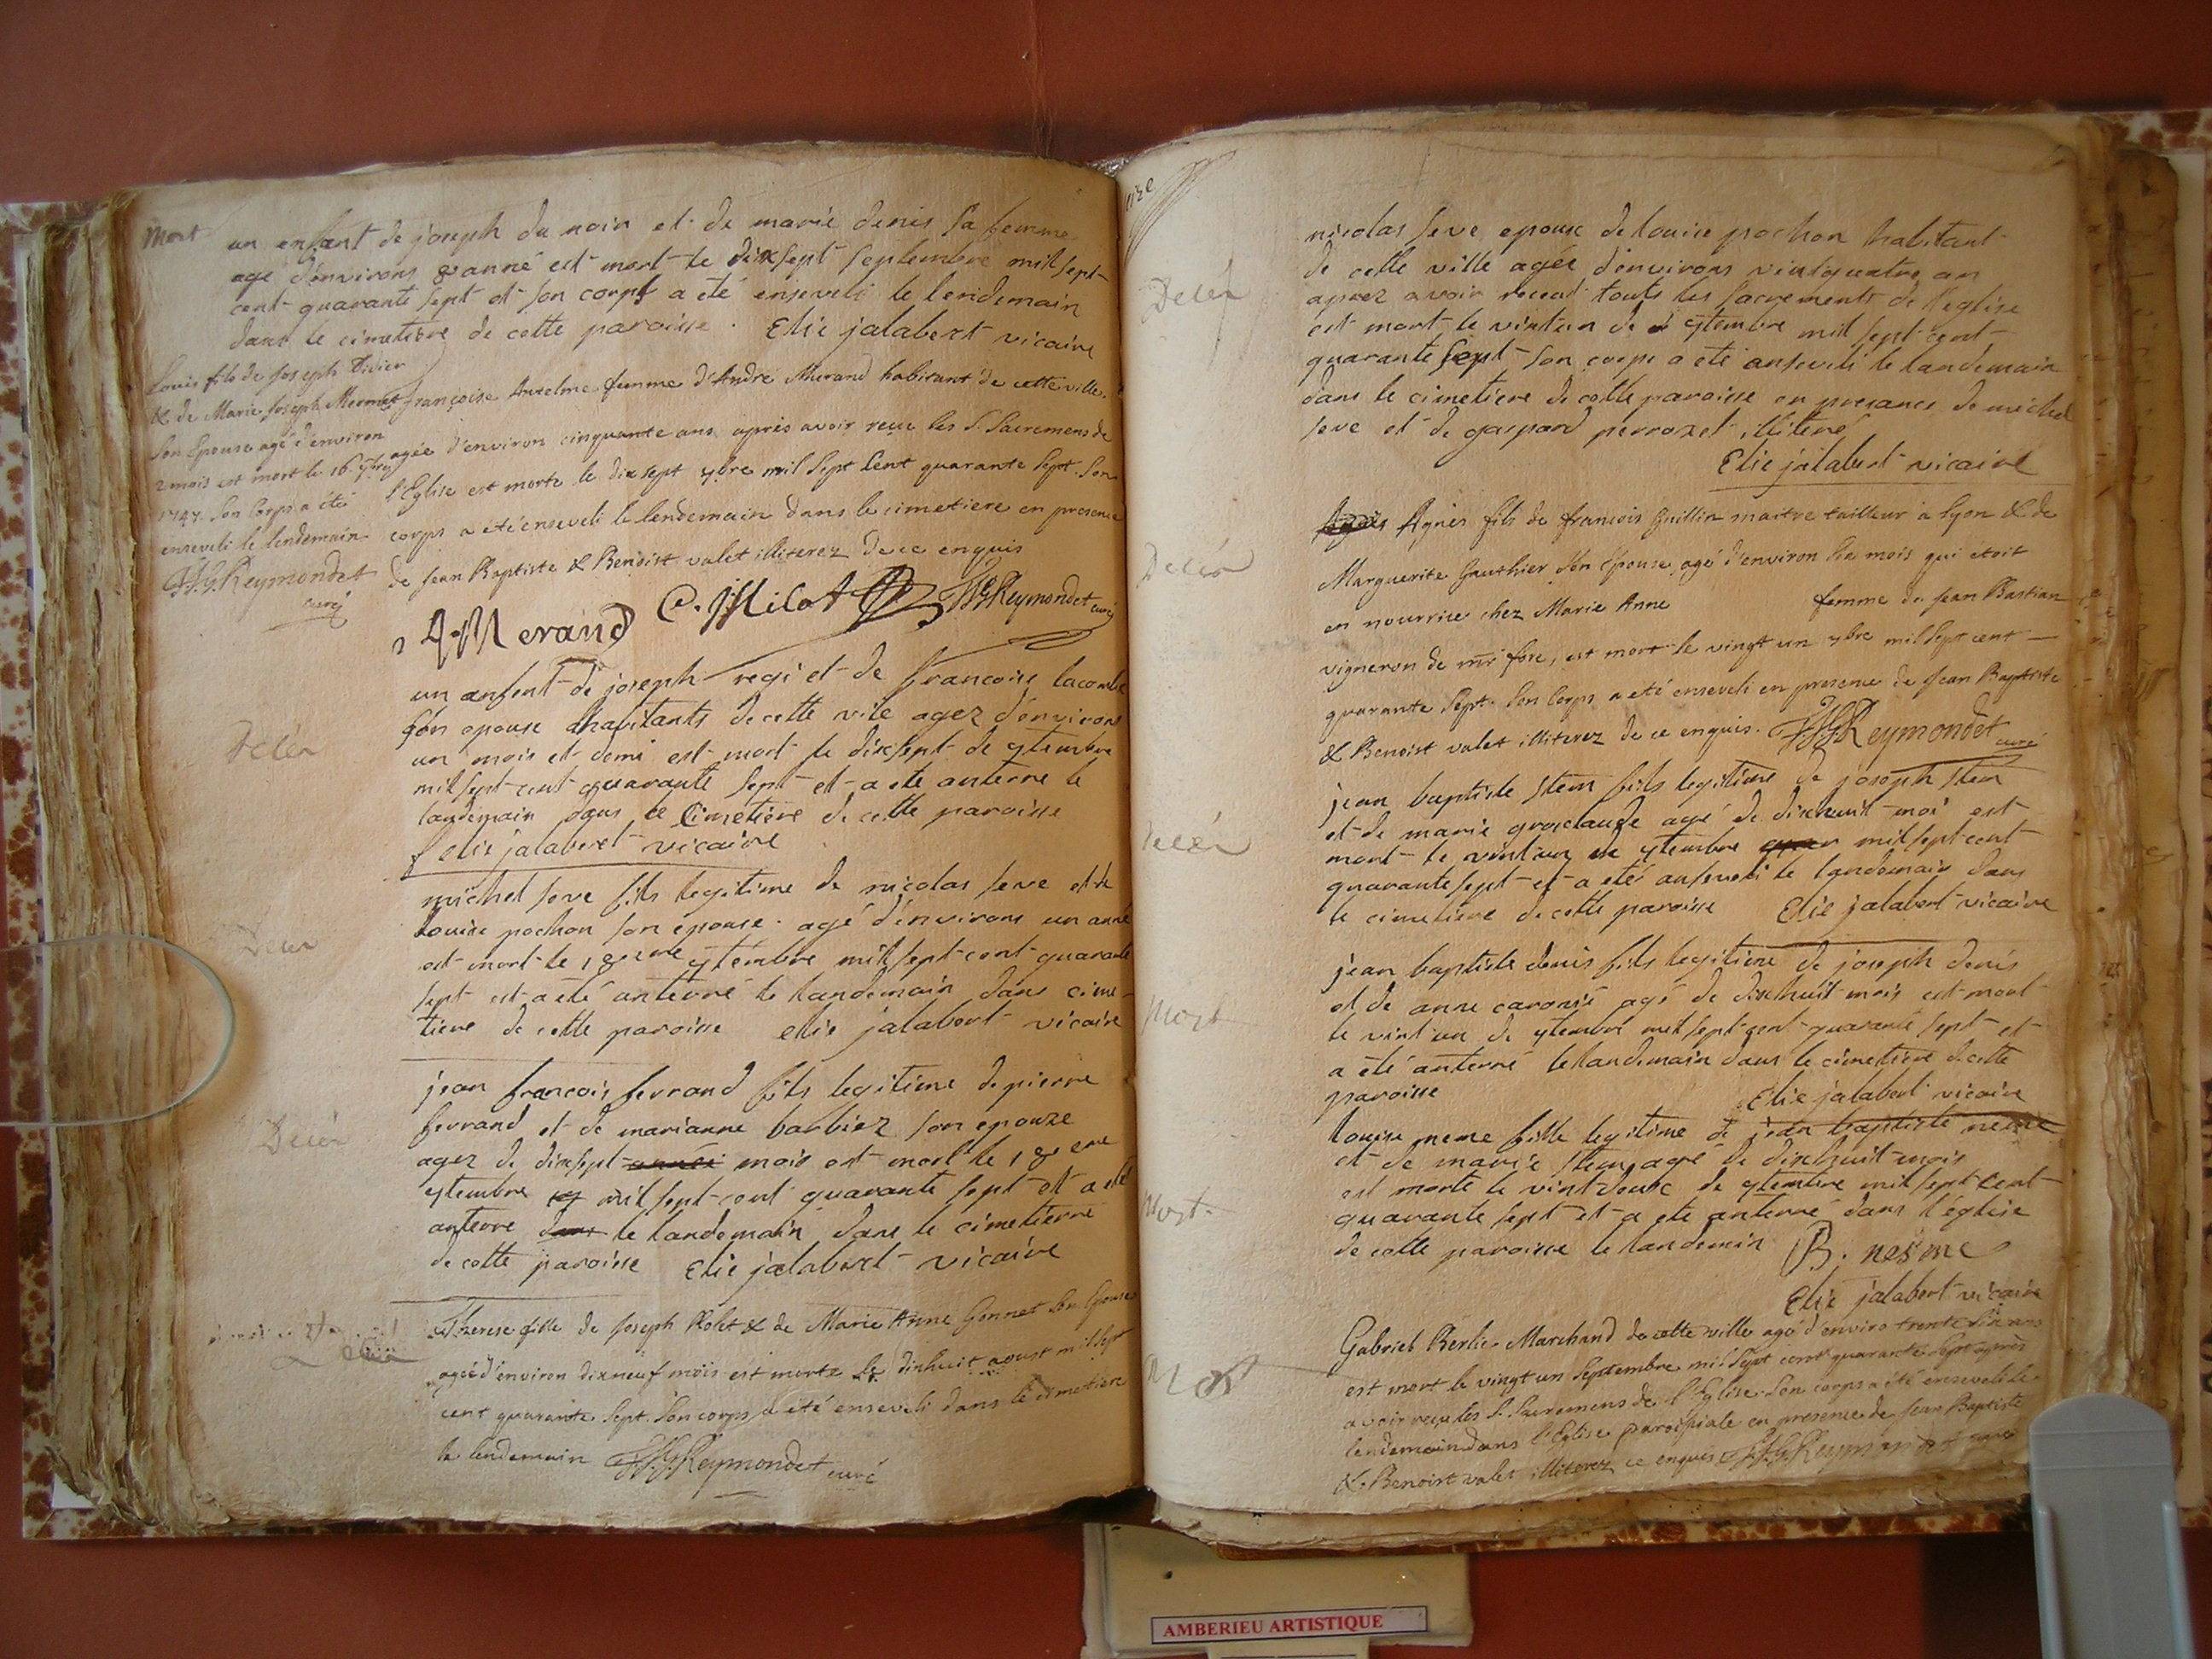 Mort
un enfant de joseph du noir et de marie denis sa femme
agé d'environs 8 anné est mort le dixsept septembre mil sept
cent quarante sept et son corps a eté enseveli le lendemain
dans le cimetière de cette paroisse . Elie jalabert vicaire
Louis fils de Joseph Didier
& de Marie Joseph Mermet
son Epouse agé d'environ
2 mois est mort le 16 7bre
1747. Son Corps a été
enseveli le lendemain
Reymondet
curé
françoise Antelme femme d'André Merand habitant de cette ville
agée d'environ cinquante ans après avoir reçue les S. Sacremens de
l'Eglise est morte le dixsept 7bre mil Sept Cent quarante Sept. Son
corps a eté enseveli le lendemain dans le cimetiere en presence
de Jean Baptiste & Benoist valet illiterez de ce enquis
A. Merand C. Milot Reymondet curé
Decér
un anfent de joseph regi et de francoise lacombe
son epouse habitants de cette vile agez d'environs
un mois et demi est mort le dixsept de 7tembre
mil sept cent quarante sept et a ete anterre le
landemain dans le Cimetière de cette paroisse
elie jalabert vicaire
Decér
michel seve fils legitime de nicolas seve et de
Louise pochon son épouse . agé d'environs un anné
est mort le 18eme 7tembre mil sept cent quarante
sept et a eté anterré le landemain dans cime
tiere de cette paroisse elie jalabert vicaire
Decér
jean francois ferrand fils legitime de pierre
ferrand et de marianne barbiez son epouze
agez de dixsept mois est mort le 18 eme
7tembre mil sept cent quarante sept et a eté
anterre le landemain dans le cimetierre
de cette paroisse Elie jalabert vicaire
Therese fille de Joseph Robt & de Marie Anne Gonnet son Epouse
agée d'environ dixneuf mois est morte le dixhuit aoust mil Sept
cent quarante Sept. Son corps a été enseveli dans le cimetiere
le lendemain Reymondet curé
Decér
nicolas seve epoux de louise pochon habitant
de cette ville agée d'environs vintquatre an
aprez avoir receu touts les sacrements de l'eglise
est mort le vintun de 7tembre mil sept cent
quarante sept son corps a eté anseveli le landemain
dans le cimetiere de cette paroisse en presance de michel
seve et de gaspard perrozet illiteré
Elie jalabert vicaire
Decér
Agnès fils de francois Guillin maitre tailleur à Lyon & de
Marguerite Gauthier son Epouse agé d'environ six mois qui étoit
en nourrice chez Marie Anne femme de Jean Bastian
vigneron de mr fore, est mort le vingt un 7bre mil Sept cent
quarante Sept. Son Corps a eté enseveli en presence de Jean Baptiste
& Benoist valet illiterez de ce enquis. Reymondet curé
Decér
jean baptiste stem fils legitime de joseph stem
et de marie grosclaude agé de dixhuit moi est
mort le vintun de 7tembre mil sept cent
quarante sept et a eté anseveli le landemain dans
le cimetiere de cette paroisse Elie jalabert vicaire
Mort
jean baptiste denis fils legitime de joseph denis
et de anne caronsié agé de dixhuit mois est mort
le vint un de 7tembre mil sept cent quarante sept et
a été anterré le landemain dans le cimetiere de cette
paroisse Elie jalabert vicaire
Mort
Louise neme fille legitime de jean baptiste neme
et de marie stem agé de dixhuit mois
est morte le vintdeux de 7tembre mil sept cent
quarante sept et a ete anterré dans l'église
de cette paroisse le landemin B. nesme
Elie jalabert vicaire
Mort
Gabriel Berlie Marchand de cette ville agé d'enviro trente six ans
est mort le vingt un Septembre mil Sept cent quarante Sept après
avoir reçu les S. Sacremens de l'Eglise. Son corps a été enseveli le
lendemain dans l'Eglise paroissiale en presence de Jean Baptiste
& Benoist valet illiterez ce enquis Reymondet curé
AMBERIEU ARTISTIQUE